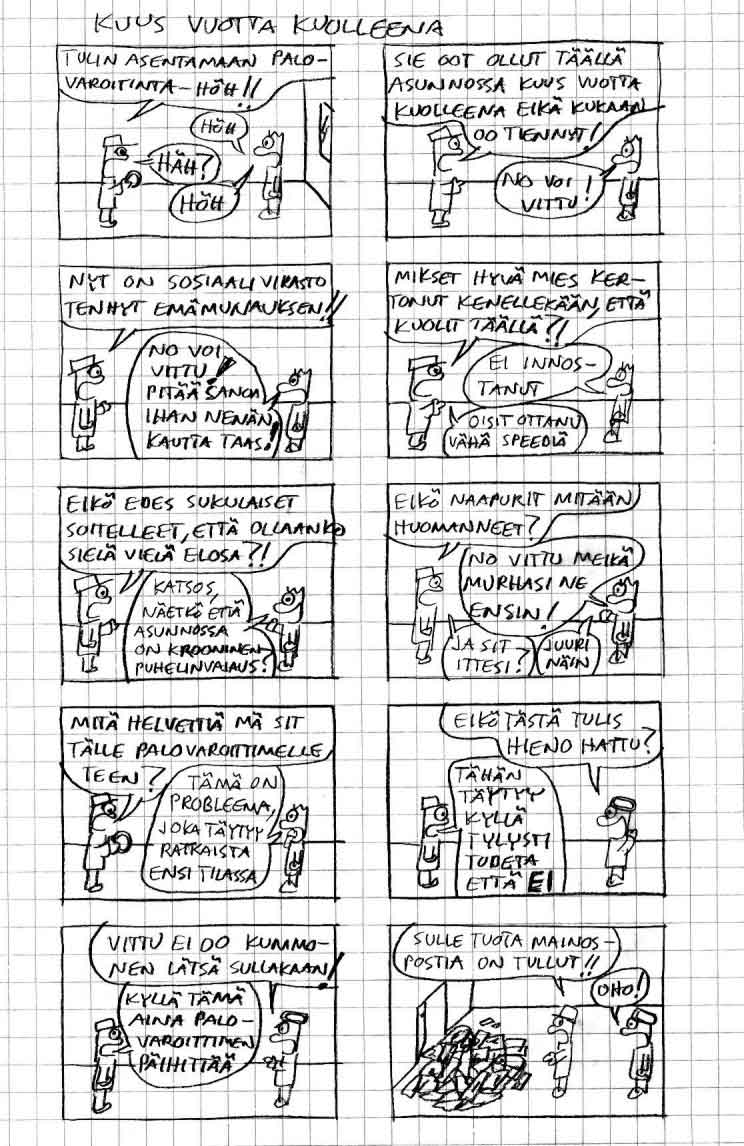 KUUS VUOTTA KUOLLEENA
TULIN ASENTAMAAN PALO-
VAROITINTA - HÖH!!
HÖH
HÄH?
HÖH
SIE OOT OLLUT TÄÄLLÄ
ASUNNOSSA KUUS VUOTTA
KUOLLEENA EIKÄ KUKAAN
OO TIENNYT!
NO VOI
VITTU!
NYT ON SOSIAALIVIRASTO
TENHYT EMÄMUNAUKSEN!!
NO VOI
VITTU!
PITÄÄ SANOA
IHAN NENÄN
KAUTTA TAAS!
MIKSET HYVÄ MIES KER-
TONUT KENELLEKÄÄN, ETTÄ
KUOLIT TÄÄLLÄ?!
EI INNOS-
TANUT
OISIT OTTANU
VÄHÄ SPEEDIÄ
EIKÖ EDES SUKULAISET
SOITELLEET, ETTÄ OLLAANKO
SIELÄ VIELÄ ELOSA?!
KATSOS,
NÄETKÖ ETTÄ
ASUNNOSSA
ON KROONINEN
PUHELINVAJAUS?
EIKÖ NAAPURIT MITÄÄN
HUOMANNEET?
NO VITTU MEIKÄ
MURHASI NE
ENSIN!
JA SIT
ITTESI?
JUURI
NÄIN
MITÄ HELVETTIÄ MÄ SIT
TÄLLE PALOVAROITTIMELLE
TEEN?
TÄMÄ ON
PROBLEEMA,
JOKA TÄYTYY
RATKAISTA
ENSI TILASSA
EIKÖ TÄSTÄ TULIS
HIENO HATTU?
TÄHÄN
TÄYTYY
KYLLÄ
TYLYSTI
TODETA
ETTÄ EI
VITTU EI OO KUMMO-
NEN LÄTSÄ SULLAKAAN!
KYLLÄ TÄMÄ
AINA PALO-
VAROITTIMEN
PÄIHITTÄÄ
SULLE TUOTA MAINOS-
POSTIA ON TULLUT!!
OHO!